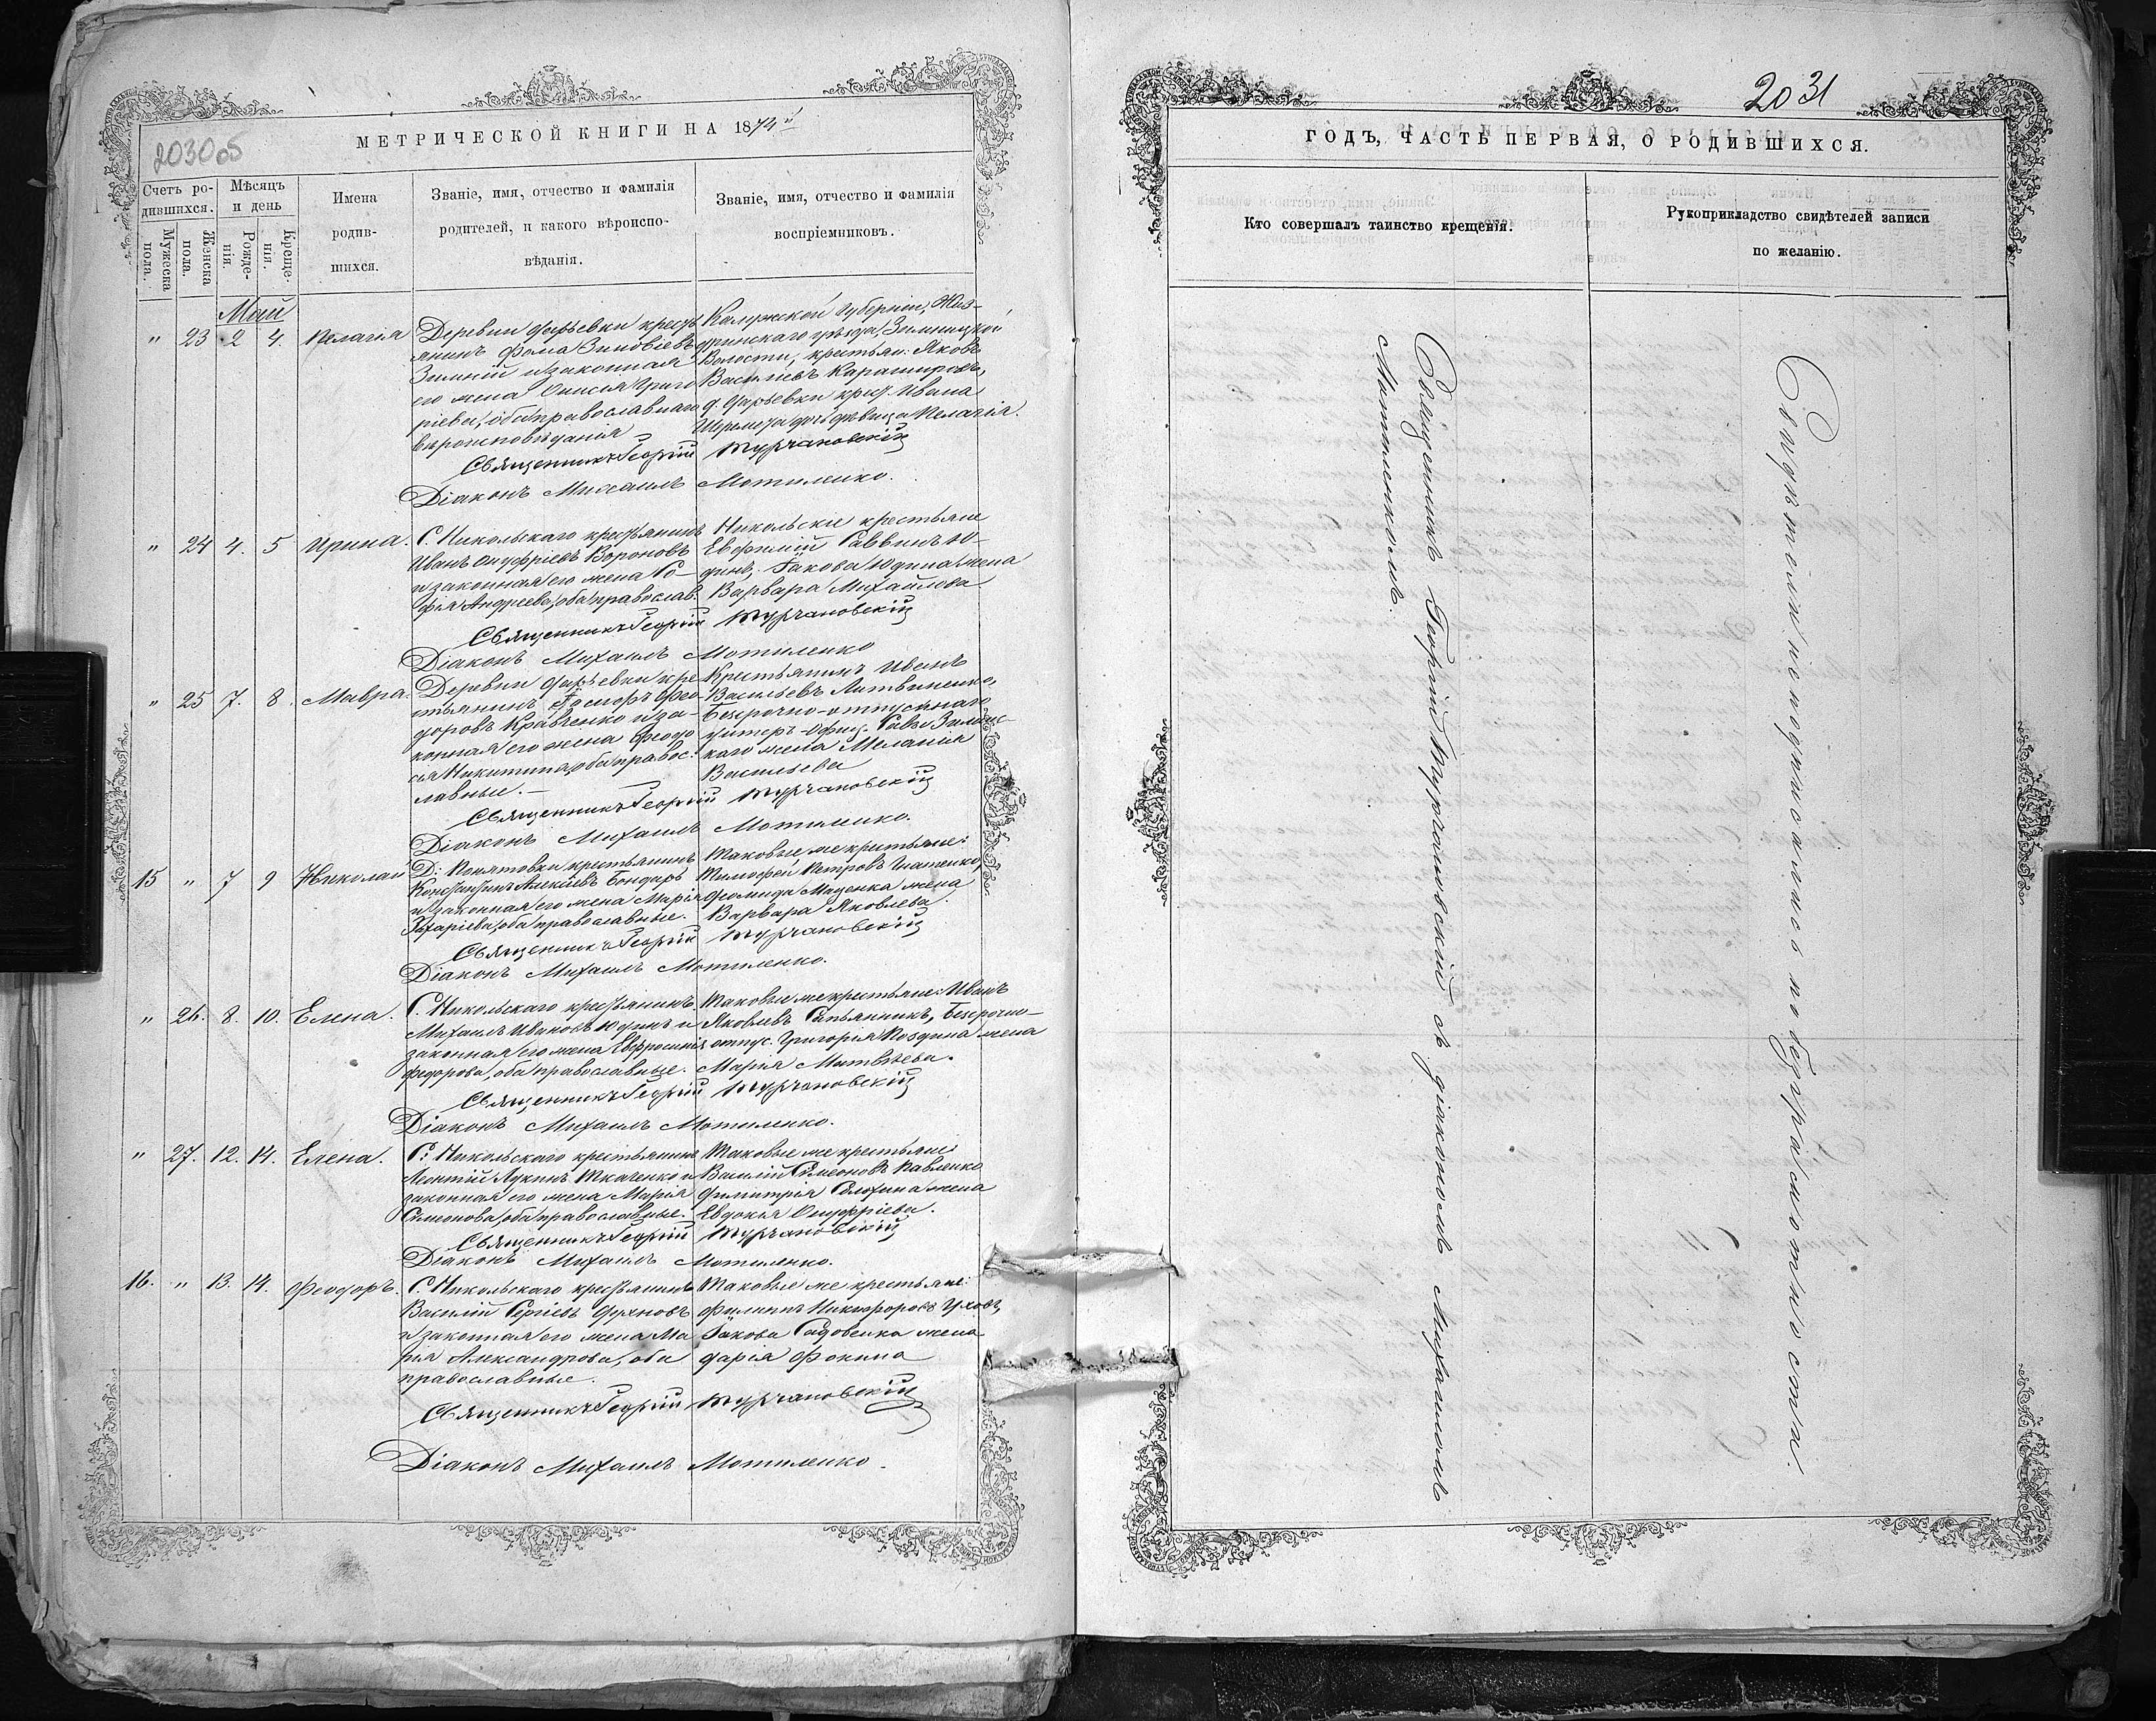 МЕТРИЧЕСКОЙ КНИГИ НА 1874й
2030об
Счетъ родившихся.
Мужеска пола.
Женска пола.
Мѣсяцъ и день
Рожденія.
Крещенія.
Имена родившихся.
Званіе, имя, отчество и фамилія
родителей, и какого вѣроиспо-
вѣданія.
Званіе, имя, отчество и фамилія
воспріемниковъ.
Май
" 23 2 4. Пелагія
Деревни Дарьевки кресть
янинъ Фома Зиновіевъ
Зимній и законная
его жена Онисія Григо
ріева, оба православнаго
вѣроисповѣданія
Калужской губерніи, Жиз-
дринскаго уѣзда, Зимницкой
Волости, крестьян: Яковъ
Васильевъ
д. Дарьевки крест. Ивана
дочь дѣвица Пелагія.
Священникъ Георгій Турчановскій
Діаконъ Михаилъ Мотиленко.
" 24 4. 5 Ирина.
С. Никольскаго крестьянинъ
Иванъ Онуфріевъ Вороновъ
и законная его жена Со-
фія Андреева, оба православ.
Никольскіе крестьяне
Евфимій Саввинъ Ю-
динъ, Іакова Юдина жена
Варвара Михайлова
Священникъ Георгій Турчановскій
Діаконъ Михаилъ Мотиленко
" 25 7. 8. Мавра.
Деревни Дарьевки кре
стьянинъ Іосифъ Фео-
доровъ Кравченко и за-
конная его жена Феодо
сія Никитина, оба правос-
лавные.
Крестьянинъ Иванъ
Васильевъ Литвиненко,
Безсрочно-отпускнаго
унтеръ-офиц. Саввы
жена Меланія
Васильева
Священникъ Георгій Турчановскій
Діаконъ Михаилъ Мотиленко.
15 " 7 9 Николай
Д: Понятовки крестьянинъ
Константинъ Алексіевъ Бондарь
и законная его жена Марія
Захаріева, оба православные.
Таковые же крестьяне:
Тимофей Петровъ Игнатенко,
Маценка жена
Варвара Яковлева.
Священникъ Георгій Турчановскій
Діаконъ Михаилъ Мотиленко.
" 26. 8. 10. Елена.
С. Никольскаго крестьянинъ
Михаилъ Ивановъ Юдинъ и
законная его жена Евфросинія
Федорова, оба православные.
Таковые же крестьяне: Иванъ
Яковлевъ Безсрочно-
отпус. Григорія Поздина жена
Марія Матвѣева.
Священникъ Георгій Турчановскій
Діаконъ Михаилъ Мотиленко.
" 27. 12. 14. Елена.
С: Никольскаго крестьянинъ
Леонтій Лукинъ Ткаченко и
законная его жена Марія
Симеонова, оба православные.
Таковые же крестьяне
Василій Симеоновъ Павленко
Димитрія жена
Евдокія Онуфріева.
Священникъ Георгій Турчановскій
Діаконъ Михаилъ Мотиленко.
16. " 13. 14. Феодоръ.
С. Никольскаго крестьянинъ
Василій Сергіевъ Духновъ
и законная его жена Ма
рія Александрова, оба
православные.
Таковые же крестьяне:
Филиппъ Никифоровъ
Іакова Садовенка жена
Дарія Фокина
Священникъ Георгій Турчановскій
Діаконъ Михаилъ Мотиленко.
2031
ГОДЪ, ЧАСТЬ ПЕРВАЯ, О РОДИВШИХСЯ.
Кто совершалъ таинство крещенія.
Рукоприкладство свидѣтелей записи
по желанію.
Священникъ Георгій Турчановскій съ діакономъ Михаиломъ
Мотиленкомъ.
Свидѣтели не подписались по безграмотности.